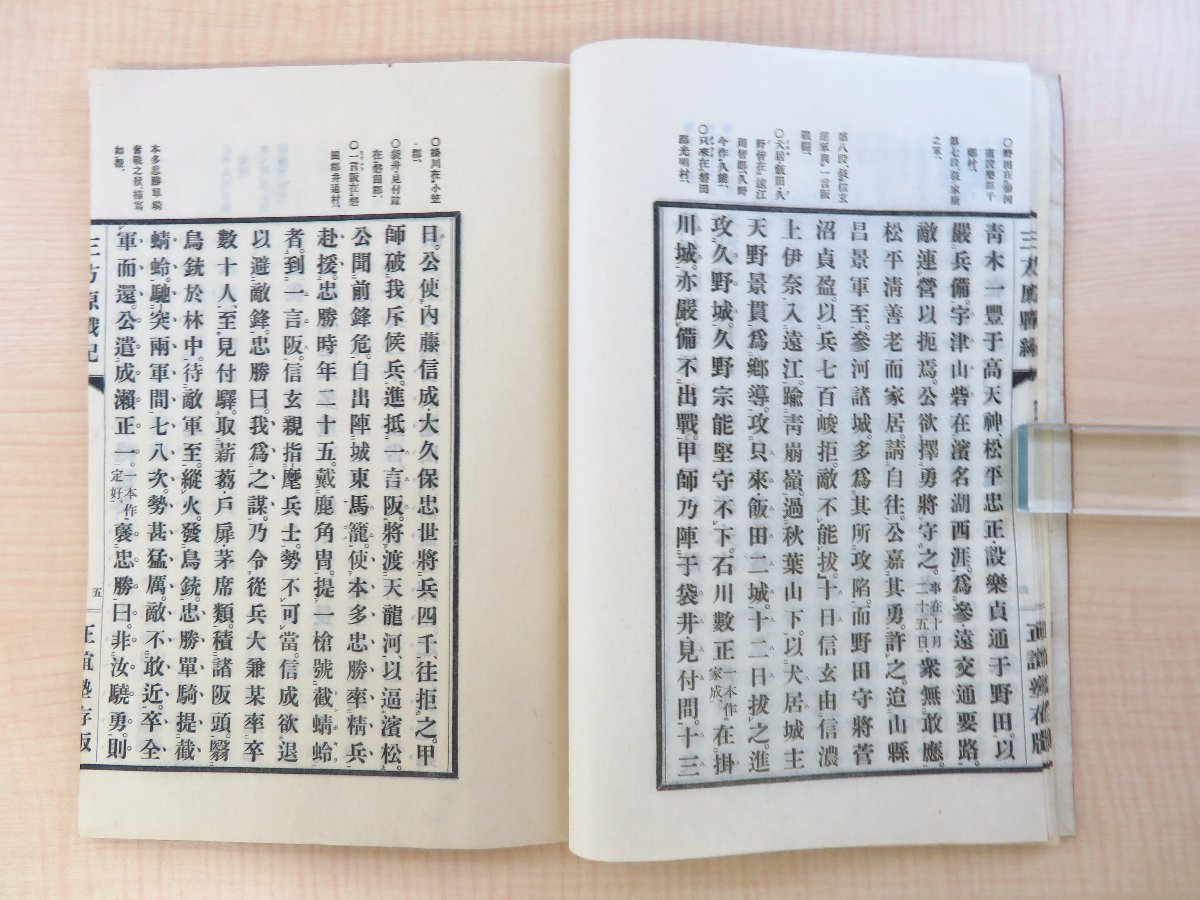 ○野田在參河
南設樂郡千
鄕村、
第七段、叙家康
之軍、
第八段、叙信玄
進軍與一言阪
戰鬪、
○犬居・飯田・久
野皆在遠江
周智郡、久野
今作久能、
○只來在磐田
郡光明村、
靑木一豐于高天神、松平忠正設樂貞通于野田。以
嚴兵備。宇津山砦在濱名湖西涯。爲參遠交通要路。
敵連營以扼焉。公欲擇勇將守之、事在十月二十五日、衆無敢應。
松平淸善老而家居。請自往。公嘉其勇、許之。迨山縣
昌景軍至。參河諸城。多爲其所攻陷。而野田守將菅
沼貞盈。以兵七百峻拒。敵不能拔。十日信玄由信濃
上伊奈入遠江。踰靑崩嶺。過秋葉山下。以犬居城主
天野景貫爲鄕導。攻只來・飯田二城。十二日拔之。進
攻久野城。久野宗能堅守不下。石川數正一本作家成、在掛
川城。亦嚴備不出戰。甲師乃陣于袋井・見付間。十三
○掛川在小笠
郡、
○袋井・見付竝
在磐田郡、
○一言阪在磐
田郡井通村、
本多忠勝單騎
奮戰之狀、描寫
如覩、
日。公使內藤信成・大久保忠世將兵四千、往拒之。甲
師破我斥候兵。進抵一言阪。將渡天龍河、以逼濱松。
公聞前鋒危。自出陣城東馬籠。使本多忠勝率精兵
赴援。忠勝時年二十五。戴鹿角冑。提一槍號截蜻蛉
者。到一言阪。信玄親指麾兵士。勢不可當。信成欲退
以避敵鋒。忠勝曰。我爲之謀。乃令從兵大兼某率卒
數十人。至見付驛。取薪蒭戶扉茅席類。積諸阪頭。翳
鳥銃於林中。待敵軍至。縱火。發鳥銃。忠勝單騎提截
蜻蛉。馳突兩軍間七八次。勢甚猛厲。敵不敢近。卒全
軍而還。公遣成瀨正一一本作定好、褒忠勝曰。非汝驍勇。則
三方原戰記
五